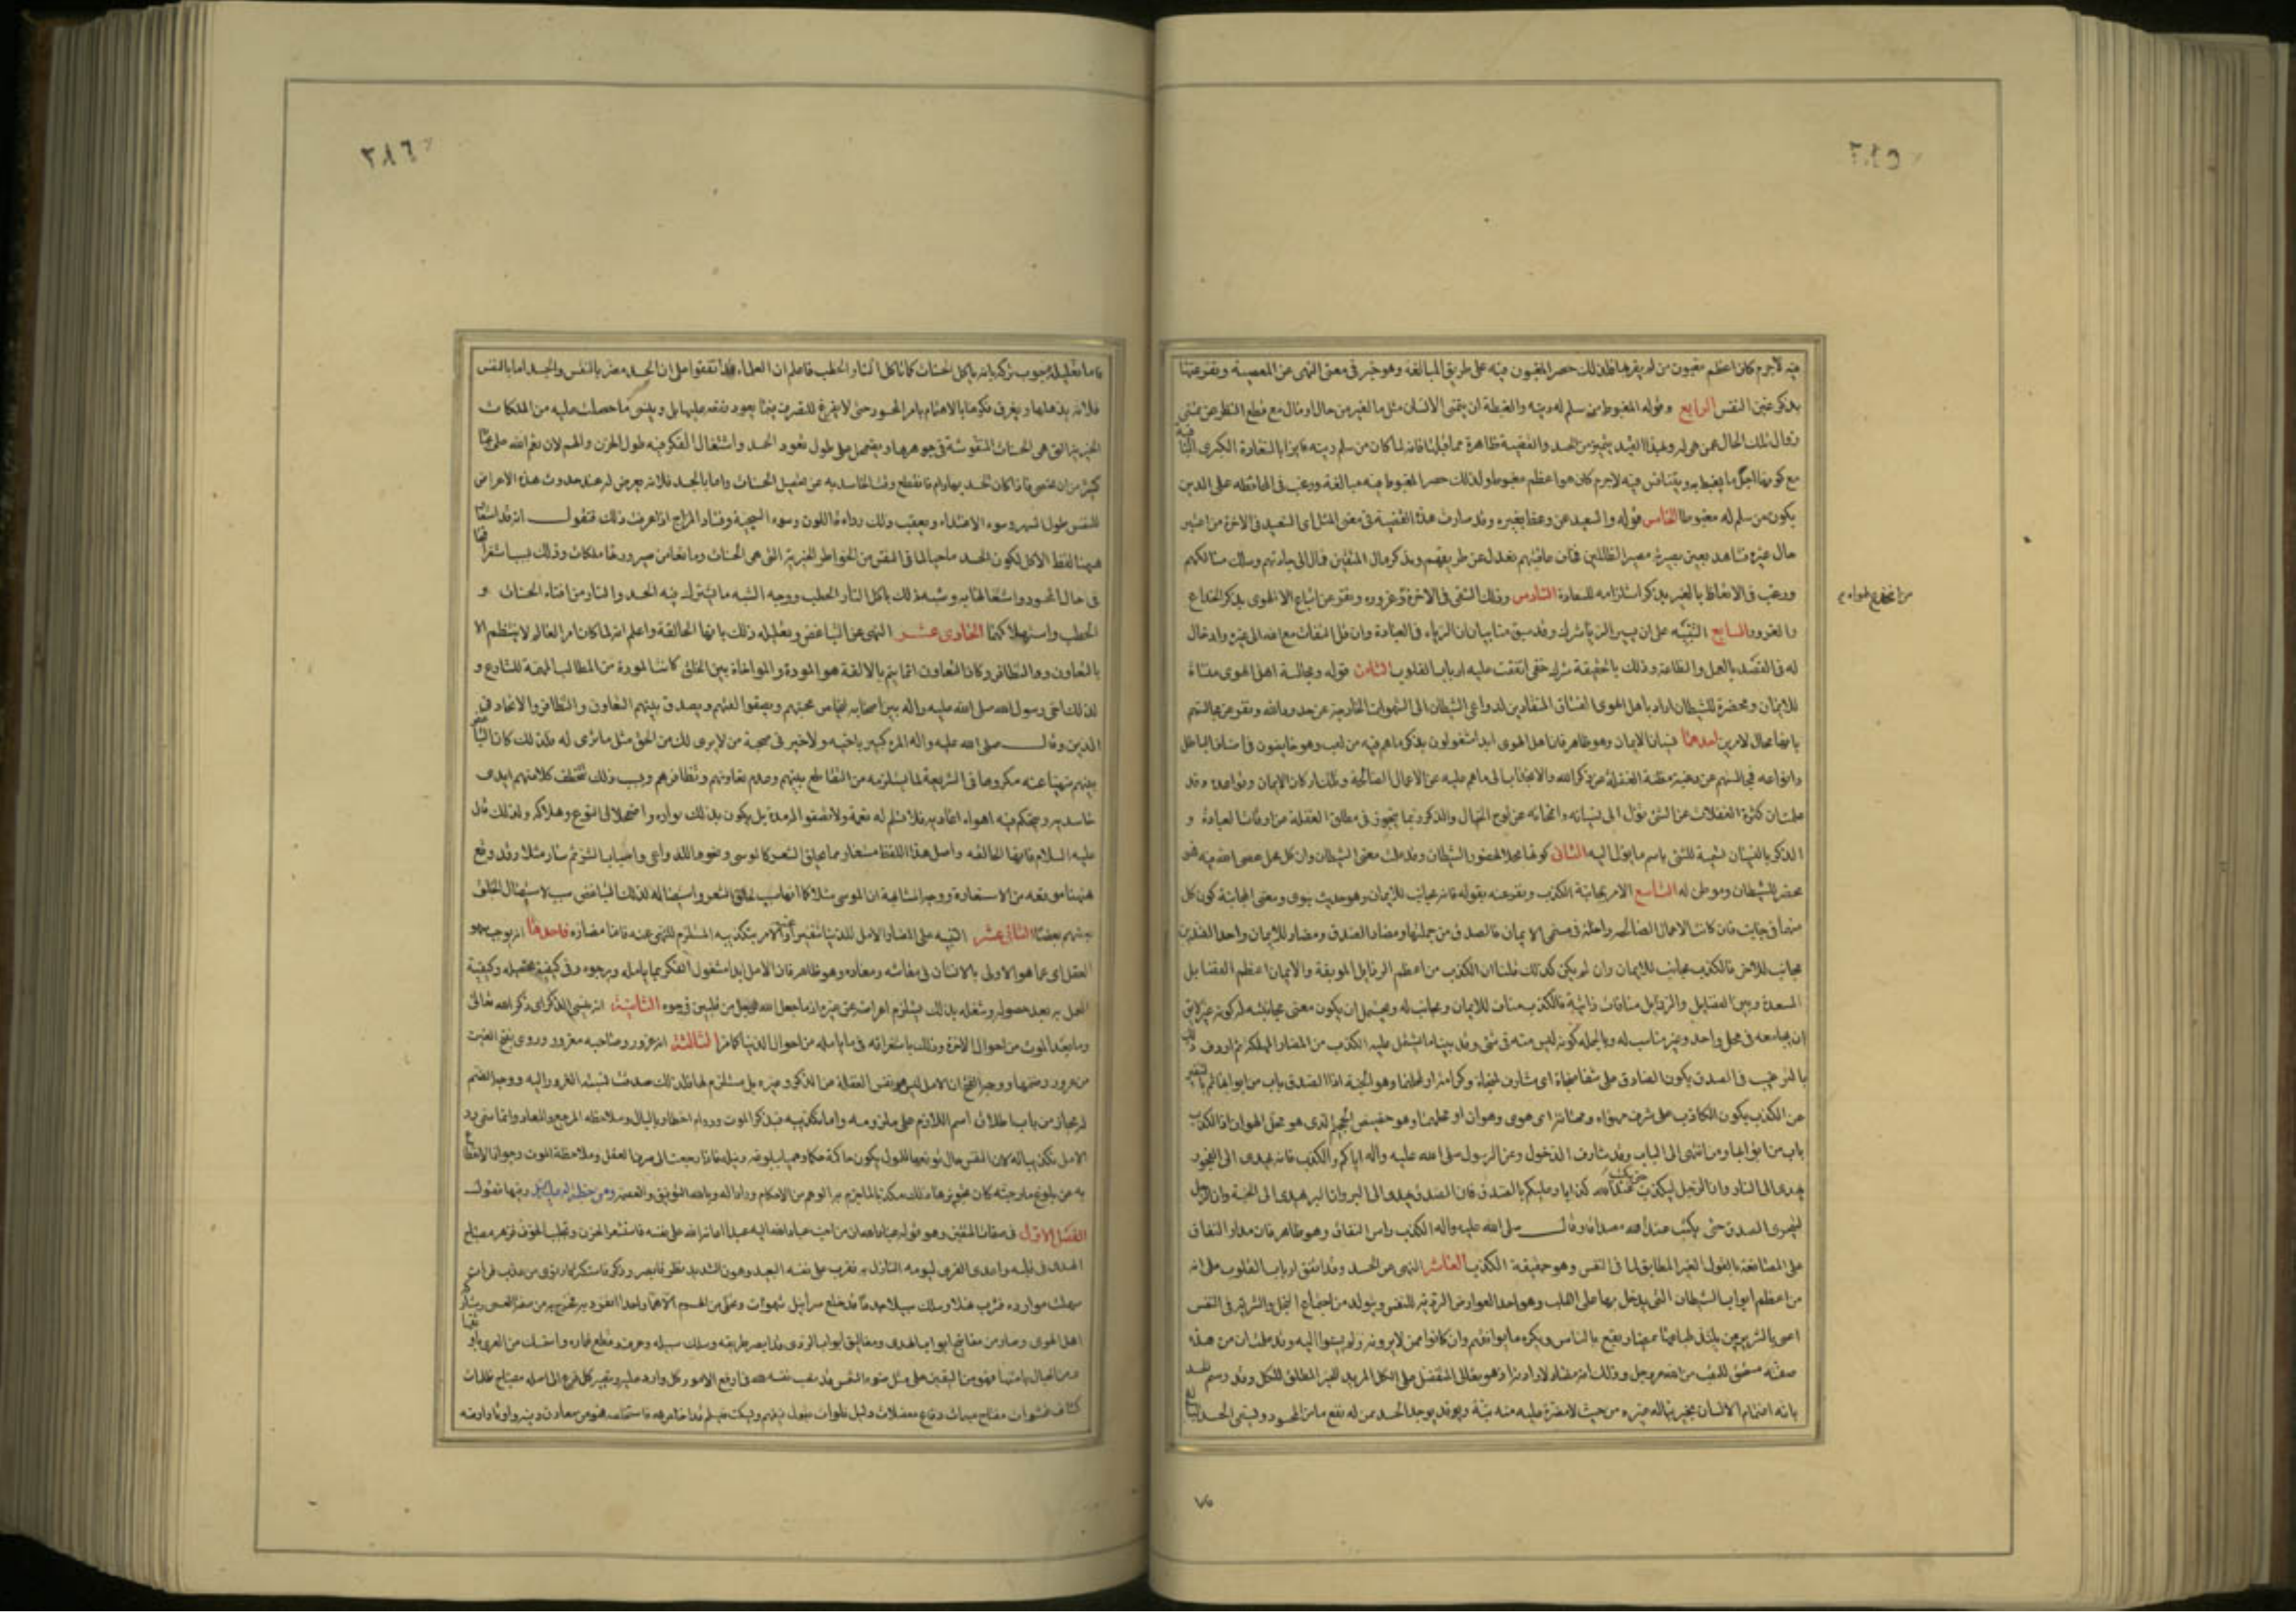 ٢٨٥
فيه لاجرم كان اعظم مغبون من لم يقرها فلذلك حصر المغبون فيه على طريق المبالغة وهو خبر فى معنى النهى عن المعصية ونفر عنها
بذكر غبن النفس الرابع وقوله المغبوط من سلم له دينه والغبطة ان يتمنى الانسان مثل ما للغير من حال او مال مع قطع النظر عن تمنى
زوال تلك الحال عمن هى له وبهذا القيد يتميز من الحسد والقضية ظاهرة مما قبلها فانه لما كان من سلم دينه فايزا بالسعادة الكبرى
مع كونها اجل ما يغبط به ويتنافس فيه لاجرم كان هو اعظم مغبوط ولذلك حصر المغبوط فيه مبالغة ورغب فى المحافظه على الدين
يكون من سلم له مغبوطا الخامس قوله والسعيد من وعظ بغيره وقد صارت هذه القضية فى معنى المثل اى السعيد فى الاخرة من اعتبر
حال غيره فشاهد بعين بصيرته مصير الظالمين فخاف عاقبتهم فعدل عن طريقهم وبذكر مال المتقين فمال الى جادتهم وسلك مسالكهم
ورغب فى الاتعاظ بالغير بذكر استلزامه للسعادة السادس وذلك الشقى فى الاخرة وغروره ونفر عن اتباع الاهوى بذكر الخداع
من انخدع لهواه
والغرور السابع التنبيه على ان يسير الرياء شرك وقد سبق منا بيان ان الرياء فى العبادة وان قل التفات مع الله الى غيره وادخال
له فى القصد بالعمل والطاعة وذلك بالحقيقة شرك خفى اتفقت عليه ارباب القلوب الثامن قوله ومجالسة اهل الهوى منساة
للايمان ومحضرة للشيطان اراد باهل الهوى الفساق المنقادين لدواعى الشيطان الى الشهوات الخارجية عن حدود الله ونفر عن مجالستهم
بانها محال لامرين احدهما نسيان الايمان وهو ظاهر فان اهل الهوى ابدا مشغولون بذكر ما هم فيه من لعب وهو خايضون فى اصناف الباطل
وانواعه فمجالستهم عن دينه مظنة الغفلة عن ذكر الله والانجذاب الى ما هم عليه عن الاعمال الصالحة وتلك اركان الايمان وقواعده وقد
علمت ان كثرة الغفلات عن الشىء تؤل الى نسيانه وامحائه عن لوح الخيال والذكر وتما يتجوز فى مطلق الغفلة من اوقات العبادة و
الذكر بالنسيان تسمية للشىء باسم ما يؤل اليه الثانى كونها محلا لحضور الشيطان وقد علمت معنى الشيطان وان كل محل عصى الله فيه فهو
محضر للشيطان وموطن له التاسع الامر بمجانبة الكذب ونفر عنه بقوله فانه مجانب للايمان وهو حديث نبوى ومعنى المجانبة كون كل
منهما فى جانب فان كانت الاعمال الصالحة داخلة فى مسمى الايمان فالصدق من جملتها ومضاد الصدق ومضاد للايمان واحد الضدين
مجانب للاخر فالكذب مجانب للايمان وان لم يكن كذلك قلنا ان الكذب من اعظم الرذايل الموبقة والايمان اعظم الفضايل
المسعدة وبين الفضايل والرذايل منافات ذاتية فالكذب مناف للايمان ومجانب له ويحتمل ان يكون معنى مجانبته له كونه غير لايق
ان يجامعه فى محل واحد وغير مناسب له وبالجملة كونه ليس منه فى شىء وقد بينا ما اشتمل عليه الكذب من المضار المهلكة ثم اردف ذلك
بالترغيب فى الصدق بكون الصادق على شفا منجاة اى مشارف لنجاة وكرامة او لمحلهما وهو الجنة اذا الصدق باب من ابوابها ثم بالتنفير
عن الكذب بكون الكاذب على شرف مهواة ومهانة اى هوى وهوان او محلهما وهو حضيض الجحيم الذى هو محل الهوان اذ الكذب
باب من ابوابها ومن انتهى الى الباب وقد شارف الدخول وعن الرسول صلى الله عليه واله اياكم والكذب فانه يهدى الى الفجور
يهدى الى النار وان الرجل ليكذب حتى يكتب عند الله كذابا وعليكم بالصدق فان الصدق يهدى الى البر وان البر يهدى الى الجنة وان الرجل
ليتحرى الصدق حتى يكتب عند الله صداقا وقال صلى الله عليه واله الكذب راس النفاق وهو ظاهر فان مدار النفاق
على المصانعة بالقول الغير المطابق لما فى النفس وهو حقيقة الكذب العاشر النهى عن الحسد وقد اتفق ارباب القلوب على انه
من اعظم ابواب الشيطان التى يدخل بها على القلب وهو احد العوارض الردية للنفس ويتولد من اجتماع البخل والشر فى النفس
اعنى بالشرير من يلتذ طباعه بمضار يقع بالناس ويكره ما يوافقهم وان كانوا ممن لا يرونه ولم يسيئوا اليه وقد علمت ان من هذه
صفته مستحق للمقت من الله عز وجل وذلك انه مضاد لارادته اذ هو تعالى المتفضل على الكل المريد للخير المطلق للكل وقد رسم الحسد
بانه اغتمام الانسان بخير يناله غيره من حيث لا مضرة عليه منه البتة وقد يوجد الحسد ممن له نفع ما من المحسود ويسمى الحسد البالغ
٧٥
٢٨٦
واما تعليله وجوب تركه بانه ياكل الحسنات كما تاكل النار الحطب فاعلم ان العلماء قد اتفقوا على ان الحسد مضر بالنفس والجسد اما بالنفس
فلانه يذهلها ويغرق فكرها بالاهتمام بامر المحسود حتى لا يفرغ للتصرف فيما يعود نفعه عليها بل وينسى ما حصلت عليه من الملكات
الخيرية التى هى الحسنات المنقوشة فى جوهرها ويضمحل على طول تعود الحسد واشتغال الفكر فيه طول الحزن والهم لان نعم الله على عباده
كثيرة من ان تحصى فاذا كان الحسد بها دام فانقطع وقت الحاسد به عن تحصيل الحسنات واما بالجسد فلانه يعرض له عند حدوث هذه الاعراض
للنفس طول السهر وسوء الاغتذاء ويعقب ذلك رداءة اللون وسوء السجية وفساد المزاج اذا عرفت ذلك فنقول انه قد استعار
هيهنا لفظ الاكل لكون الحسد ماحيا لما فى النفس من الخواطر الخيرية التى هى الحسنات ومانعا من صيرورتها ملكات وذلك بسبب استغراقها
فى حال المحسود واشتغالها به وشبه ذلك باكل النار الحطب ووجه الشبه ما يشترك فيه الحسد والنار من افناء الحسنات و
الحطب واستهلاكهما الحادى عشر النهى عن التباغض وتعليله ذلك بانها الحالقة واعلم انه لما كان امر العالم لا ينتظم الا
بالتعاون والتظافر وكان التعاون انما يتم بالالفة هو المودة والمواخاة بين الخلق كانت المودة من المطالب المهمة للشارع و
لذلك اخى رسول الله صلى الله عليه واله بين اصحابه لتخلص محبتهم ويصفوا لفتهم ويصدق بينهم التعاون والتظافر والاتحاد فى
الدين وقال صلى الله عليه واله المرء كثير باخيه ولا خير فى صحبة من لا يرى لك من الحق مثل ما ترى له فلذلك كان التباغض
بينهم منهيا عنه مكروها فى الشريعة لما يستلزمه من التقاطع بينهم وعدم تعاونهم وتظافرهم وبسبب ذلك تتخطف كلا منهم ايدى
حاسديه ويتحكم فيه اهواء اعاديه فلا تسلم له نعمة ولا تصفوا له مدة بل يكون بذلك بواره واضمحلال النوع وهلاكه ولذلك قال
عليه السلام فانها الحالقه واصل هذا اللفظ مستعار مما يحلق الشعر كالموسى ونحوها للدواعى واسباب الشر ثم صار مثلا وقد وقع
هيهنا موقعه من الاستعارة ووجه المشابهة ان الموسى مثلا كما انها سبب لحلق الشعر واستيصاله لذلك التباغض سبب لاستيصال الخلق
بعضهم بعضا الثانى عشر التنبيه على المضار والامل للدنيا لتنفير والامر بتكذيبه المستلزم للنهى عنه فاما مضاره فاحدها انه يوجب سهو
العقل اى عما هو الاولى بالانسان فى معاشه ومعاده وهو ظاهر فان الامل ابدا مشغول الفكر بما يامله ويرجوه وفى كيفية تحصيله وكيفية
العمل به بعد حصوله وشغله بذلك يستلزم اعراضه عن غيره اذ ما جعل الله لرجل من قلبين فى جوفه الثانية انه ينسى الذكر اى ذكر الله تعالى
وما بعد الموت من احوال الاخرة وذلك باستغراقه فى ما يامله من احوال الدنيا كما مر الثالثة انه غرور وصاحبه مغرور وروى بفتح الغين
من غرور وضمها ووجه الفتح ان الامل ليس هو نفس الغفلة عن الذكر وغيره بل مستلزم لها فلذلك صدقت نسبة الغرور اليه ووجه الضم
انه مجاز من باب اطلاق اسم اللازم على ملزومه واما تكذيبه فبذكر الموت ودوام اخطاره بالبال وملاحظه المرجع والمعاد وانما سمى رد
الامل تكذيبا له لان النفس حال توقعها المامول يكون حاكمة حكما وهميا ببلوغه ونيله فاذا رجعت الى صرف العقل وملاحظة الموت وجواز الانقطاع
به عن بلوغ ما رجته كان تجويزها ذلك مكذبا لما جزم به الوهم من الاحكام ورادا له وبالله التوفيق والعصمة ومن خطبة له عليه السلام وفيها فصول
الفصل الاول فى صفات المتقين وهو قوله عباد الله ان من احب عباد الله اليه عبدا اعانه الله على نفسه فاستشعر الحزن وتجلبب الخوف فزهر مصباح
الهدى فى قلبه واعد القرى ليومه النازل به فقرب على نفسه البعيد وهون الشديد نظر فابصر وذكر فاستكثر وارتوى من عذب فرات
سهلت موارده فشرب نهلا وسلك سبيلا جددا قد خلع سرابيل الشهوات وتخلى من الهموم الا هما واحدا انفرد به فخرج من صفة العمى ومشاركة
اهل الهوى وصار من مفاتيح ابواب الهدى ومغاليق ابواب الردى قد ابصر طريقه وسلك سبيله وعرف مناره وقطع غماره واستمسك من العرى باوثقها
ومن الحبال بامتنها فهو من اليقين على مثل ضوء الشمس قد نصب نفسه لله فى ارفع الامور من اصدار كل وارد عليه وتصيير كل فرع الى اصله مصباح ظلمات
كشاف عشوات مفتاح مبهمات دفاع معضلات دليل فلوات يقول فيفهم ويسكت فيسلم قد اخلص لله فاستخلصه فهو من معادن دينه واوتاد ارضه